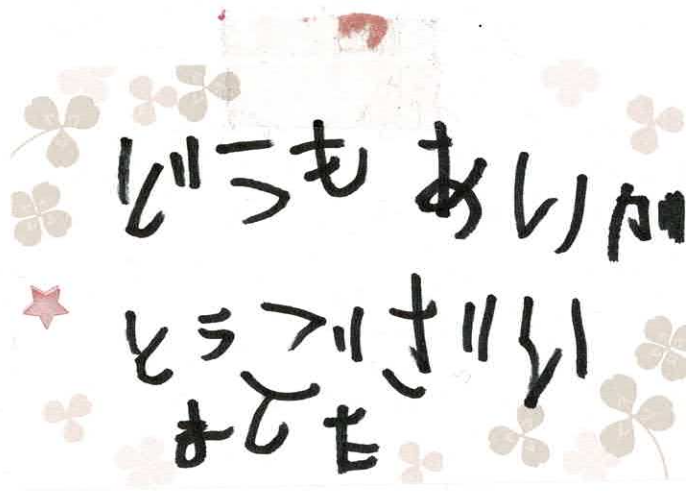 どうも ありが
とうござい
ました